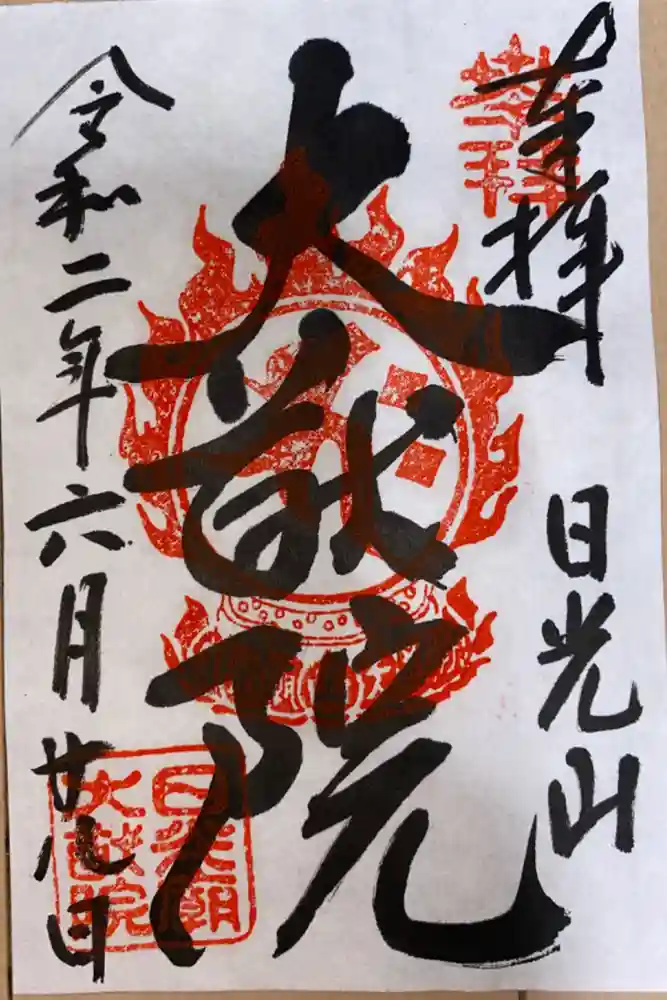 奉拝
日光山
大猷院
令和二年六月廿八日
日光廟
大猷院